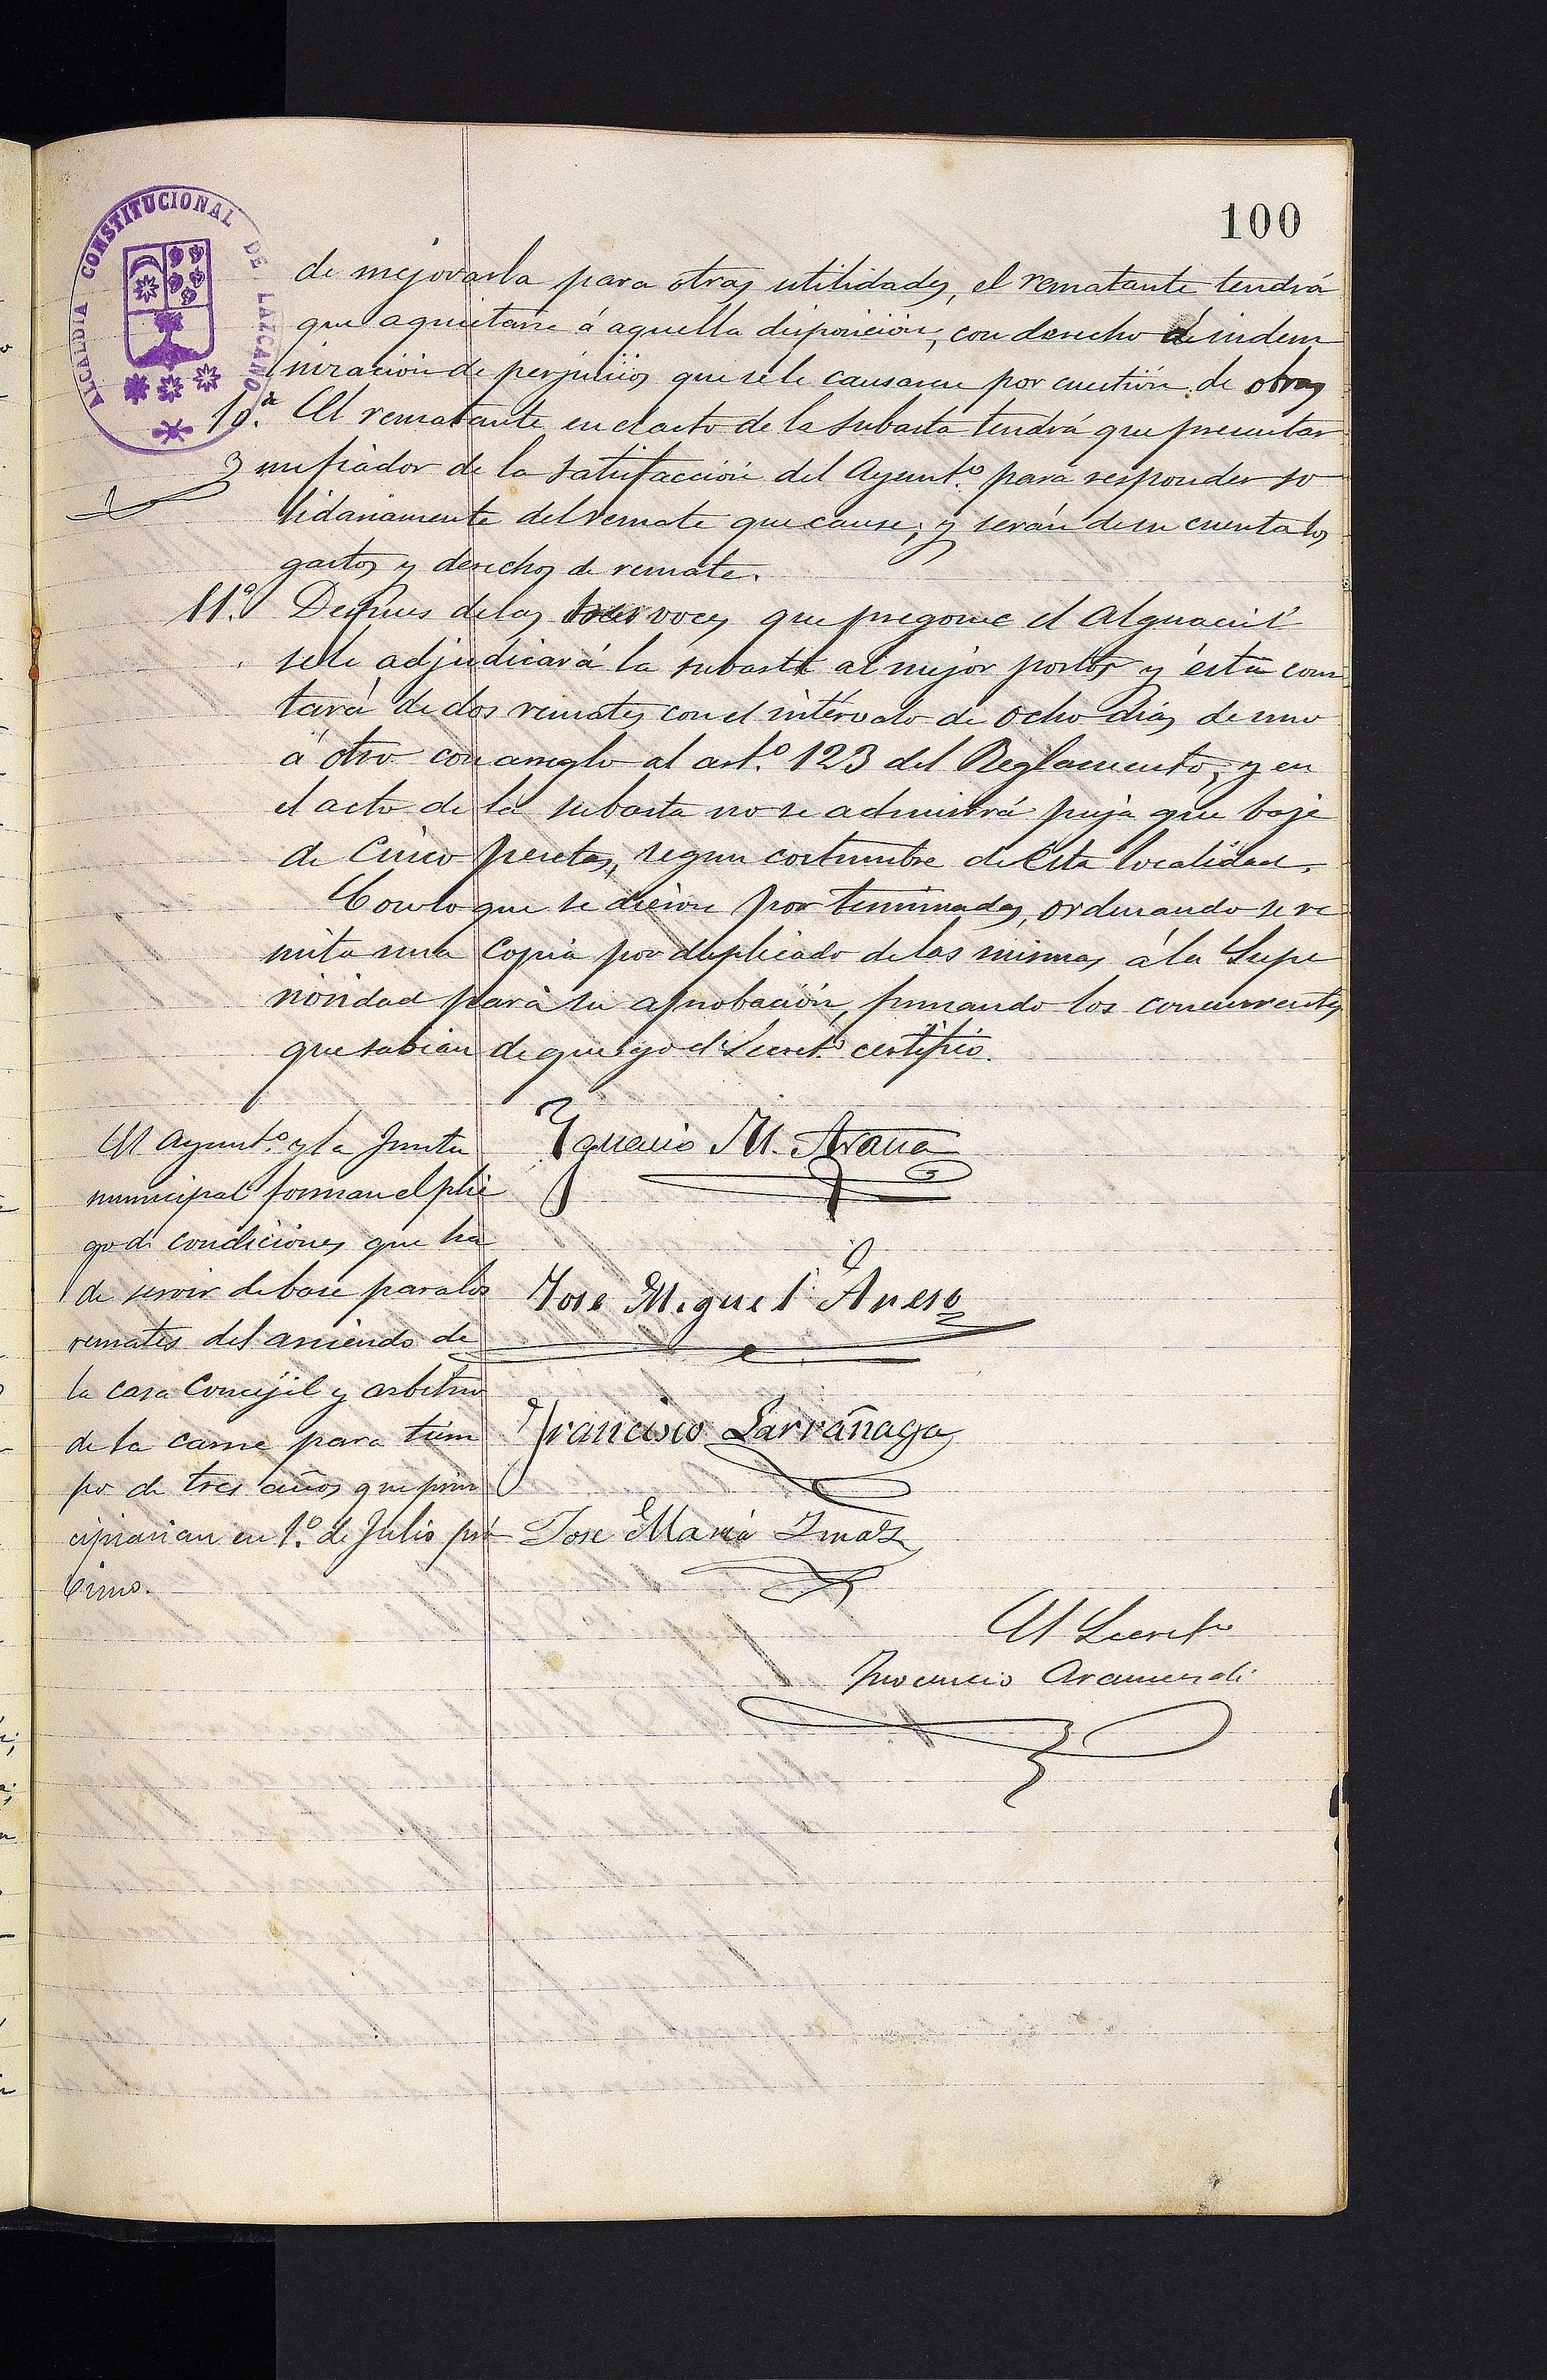 100
ALCALDIA CONSTITUCIONAL DE LAZCANO
de mejorarla para otras utilidades, el rematante tendrá
que aquietarse á aquella disposición, con derecho á indem
nización de perjuicios que se le causaren por cuestión de obras
10.ª El rematante en el acto de la subasta tendrá que presentar
un fiador de la satisfacción del Ayunt.º para responder so
lidariamente del remate que cause; y serán de su cuenta los
gastos y derechos de remate.
11.º Despues de las tres voces que pregone el Alguacil
se le adjudicará la subasta al mejor postor y ésta cons
tará de dos remates con el intérvalo de ocho dias de uno
á otro con arreglo al art.º 123 del Reglamento; y en
el acto de la subasta no se admitirá puja que baje
de Cinco pesetas, segun costumbre de esta localidad.
Con lo que se dieron por terminadas, ordenando se re
mita una Copia por duplicado de las mismas á la Supe
rioridad para su aprobación, firmando los concurrentes
que sabian de que yo el Secret.º certifico.
El Ayunt.º y la Junta
municipal forman el plie
go de condiciones que ha
de servir de base para los
remates del arriendo de
la casa Concejil y arbitrio
de la carne para tiem
po de tres años que prin
cipiarian en 1.º de Julio pró
ximo.
Ygnacio M. Arana
Jose Miguel Aneso
Francisco Larrañaga
Jose Maria Imaz
El Secret.º
Inocencio Aramendi